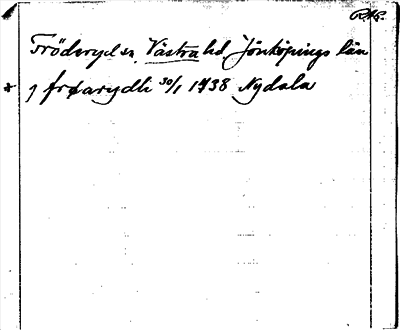 RAP.
Fröderyd sn, Västra hd, Jönköpings län
* j frøarydh 30/1 1438 Nydala